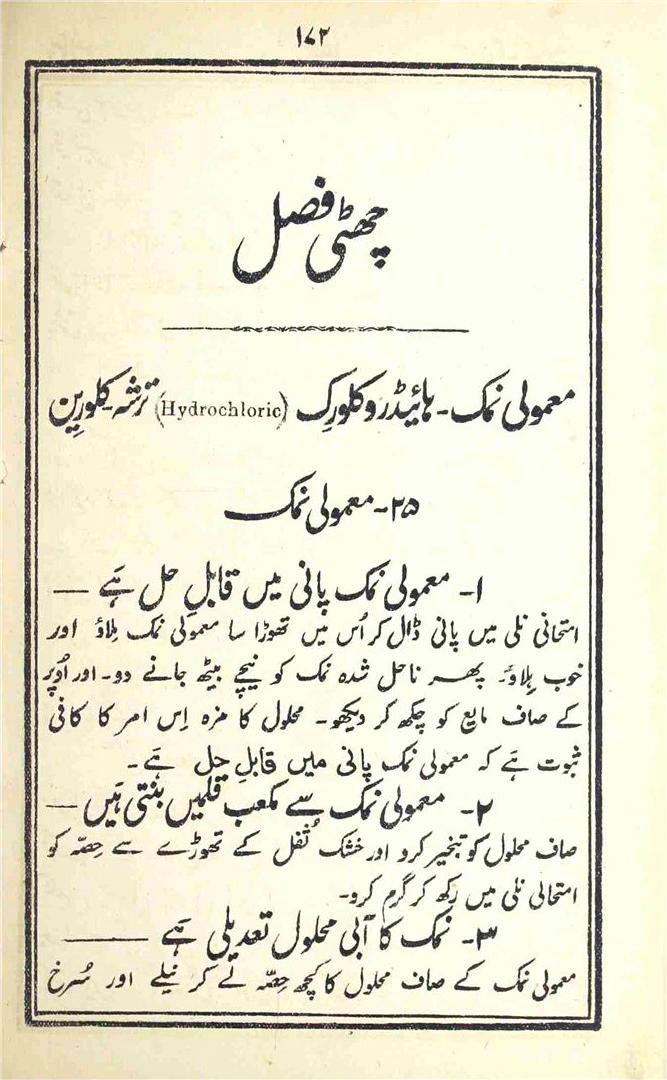 ۱۷۲
چھٹی فصل
معمولی نمک۔ ہائیڈروکلورک (Hydrochloric) ترشہ۔ کلورین
۲۵۔ معمولی نمک
۱۔ معمولی نمک پانی میں قابلِ حل ہَے —
امتحانی نلی میں پانی ڈال کر اُس میں تھوڑا سا معمولی نمک مِلاؤ اور
خوب ہِلاؤ۔ پھر ناحل شدہ نمک کو نیچے بیٹھ جانے دو۔ اور اُوپر
کے صاف مایع کو چکھ کر دیکھو۔ محلول کا مزہ اِس امر کا کافی
ثبوت ہَے کہ معمولی نمک پانی میں قابلِ حل ہَے۔
۲۔ معمولی نمک سے مکعب قلمیں بنتی ہَیں —
صاف محلول کو تبخیر کرو اور خشک ثُفل کے تھوڑے سے حِصّہ کو
امتحانی نلی میں رکھ کر گرم کرو۔
۳۔ نمک کا آبی محلول تعدیلی ہَے —
معمولی نمک کے صاف محلول کا کچھ حِصّہ لے کر نیلے اور سُرخ